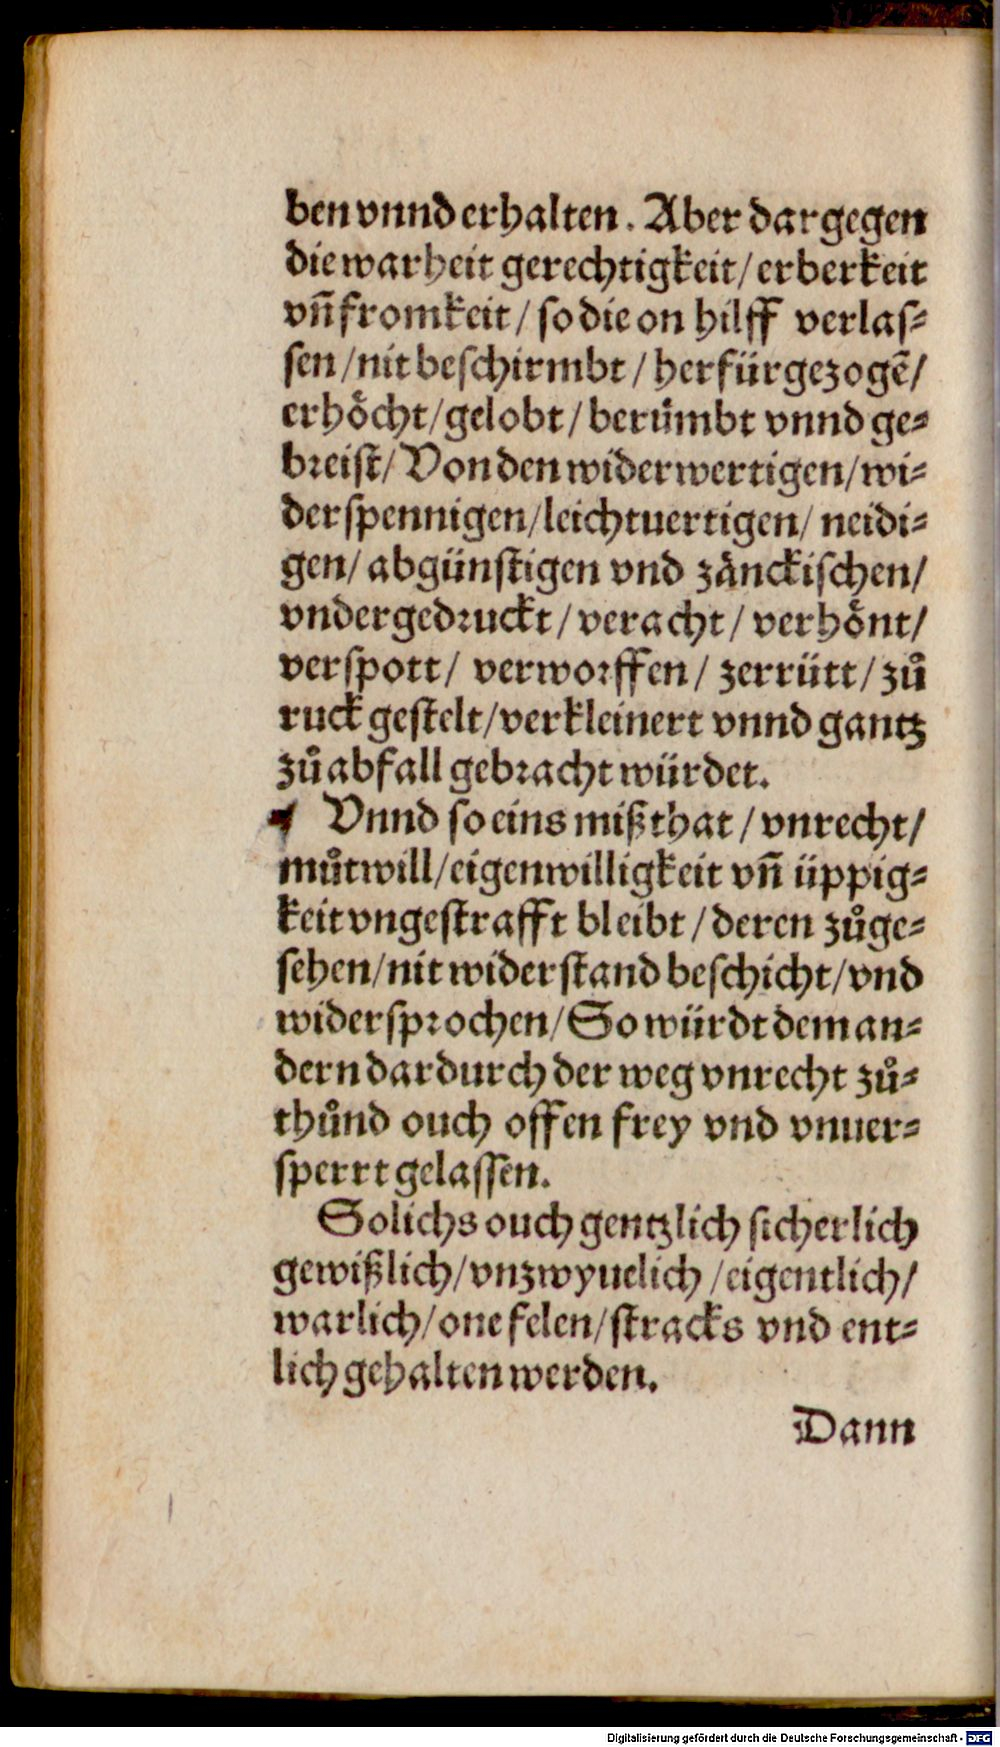 ben vnnd erhalten. Aber dargegen
die warheit gerechtigkeit/ erberkeit
vn̄ fromkeit/ so die on hilff verlas⸗
sen/ nit beschirmbt/ herfür gezogē/
erhoͤcht/ gelobt/ beruͤmbt vnnd ge⸗
breist/ Von den widerwertigen/ wi⸗
derspennigen/ leichtuertigen/ neidi⸗
gen/ abgünstigen vnd zaͤnckischen/
vndergedruckt/ veracht/ verhoͤnt/
verspott/ verworffen/ zerrütt/ zuͦ
ruck gestelt/ verkleinert vnnd gantz
zuͦ abfall gebracht würdet.
Vnnd so eins mißthat/ vnrecht/
muͦtwill/ eigenwilligkeit vn̄ üppig⸗
keit vngestrafft bleibt/ deren zuͦge⸗
sehen/ nit widerstand beschicht/ vnd
widersprochen/ So würdt dem an⸗
dern dardurch der weg vnrecht zuͦ⸗
thuͦnd ouch offen frey vnd vnuer⸗
sperrt gelassen.
Solichs ouch gentzlich sicherlich
gewißlich/ vnzwyuelich/ eigentlich/
warlich/ one felen/ stracks vnd ent⸗
lich gehalten werden.
Dann
Digitalisierung gefördert durch die Deutsche Forschungsgemeinschaft - DFG